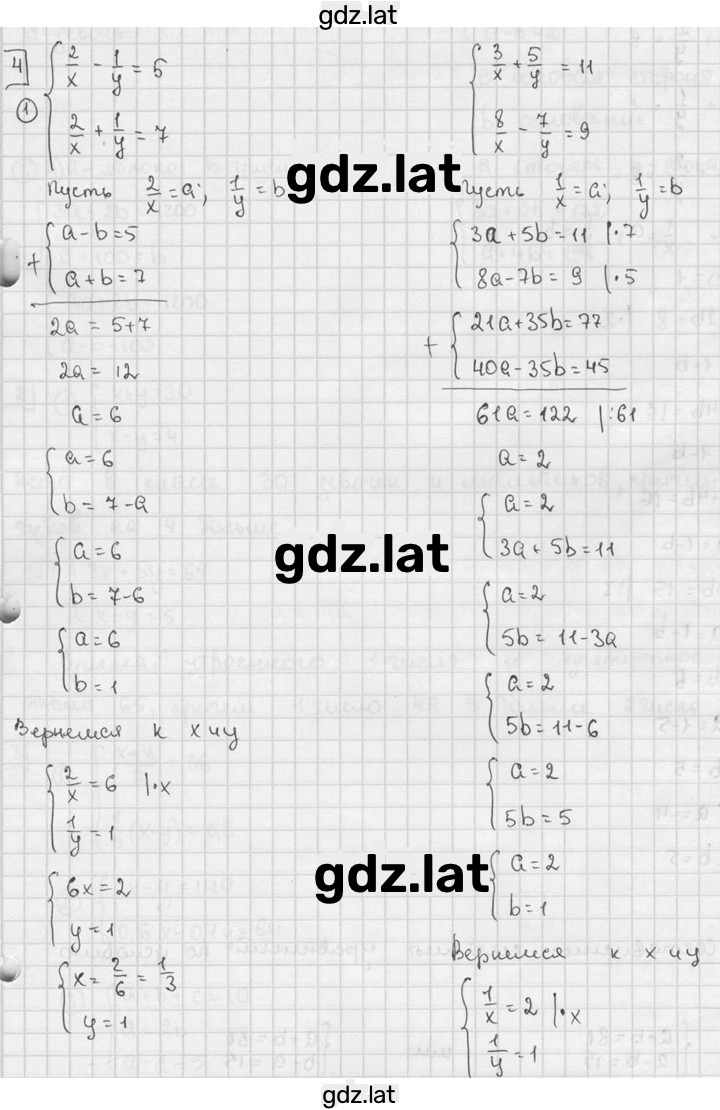 gdz.lat
4
1
2/x - 1/y = 5
2/x + 1/y = 7
Пусть 2/x = a; 1/y = b
a - b = 5
+
a + b = 7
2a = 5+7
2a = 12
a = 6
a = 6
b = 7 - a
a = 6
b = 7-6
a = 6
b = 1
Вернемся к x и y
2/x = 6 |·x
1/y = 1
6x = 2
y = 1
x = 2/6 = 1/3
y = 1
3/x + 5/y = 11
8/x - 7/y = 9
gdz.lat
Пусть 1/x = a; 1/y = b
3a + 5b = 11 |·7
8a - 7b = 9 |·5
+
21a + 35b = 77
40a - 35b = 45
61a = 122 |:61
a = 2
a = 2
3a + 5b = 11
gdz.lat
a = 2
5b = 11 - 3a
a = 2
5b = 11 - 6
a = 2
5b = 5
a = 2
b = 1
gdz.lat
Вернемся к x и y
1/x = 2 |·x
1/y = 1
gdz.lat